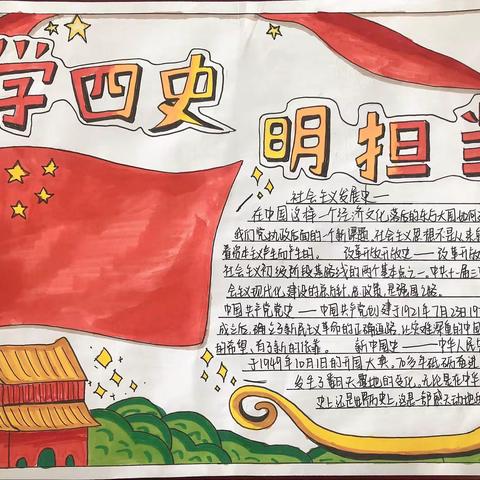 学四史
明担当
社会主义发展史——
在中国这样一个经济文化落后的东方大国如何
我们党执政后面的一个新课题,社会主义思想不是从来
着资本主义产生而产生的。 改革开放历史——改革开放
社会主义初级阶段基本路线的两个基本点之一,中共十一届三
会主义现代化建设的总方针、总政策,是强国之路。
中国共产党党史——中国共产党创建于1921年7月23日19
成立后,确立了新民主主义革命的正确道路,让灾难深重的中国
的希望,有了新的依靠。 新中国史——中华人民
于1949年10月1日的开国大典,70多年砥砺奋进
发生了翻天覆地的变化,无论是在中华
史上,还是世界历史上,这是一部感天动地的